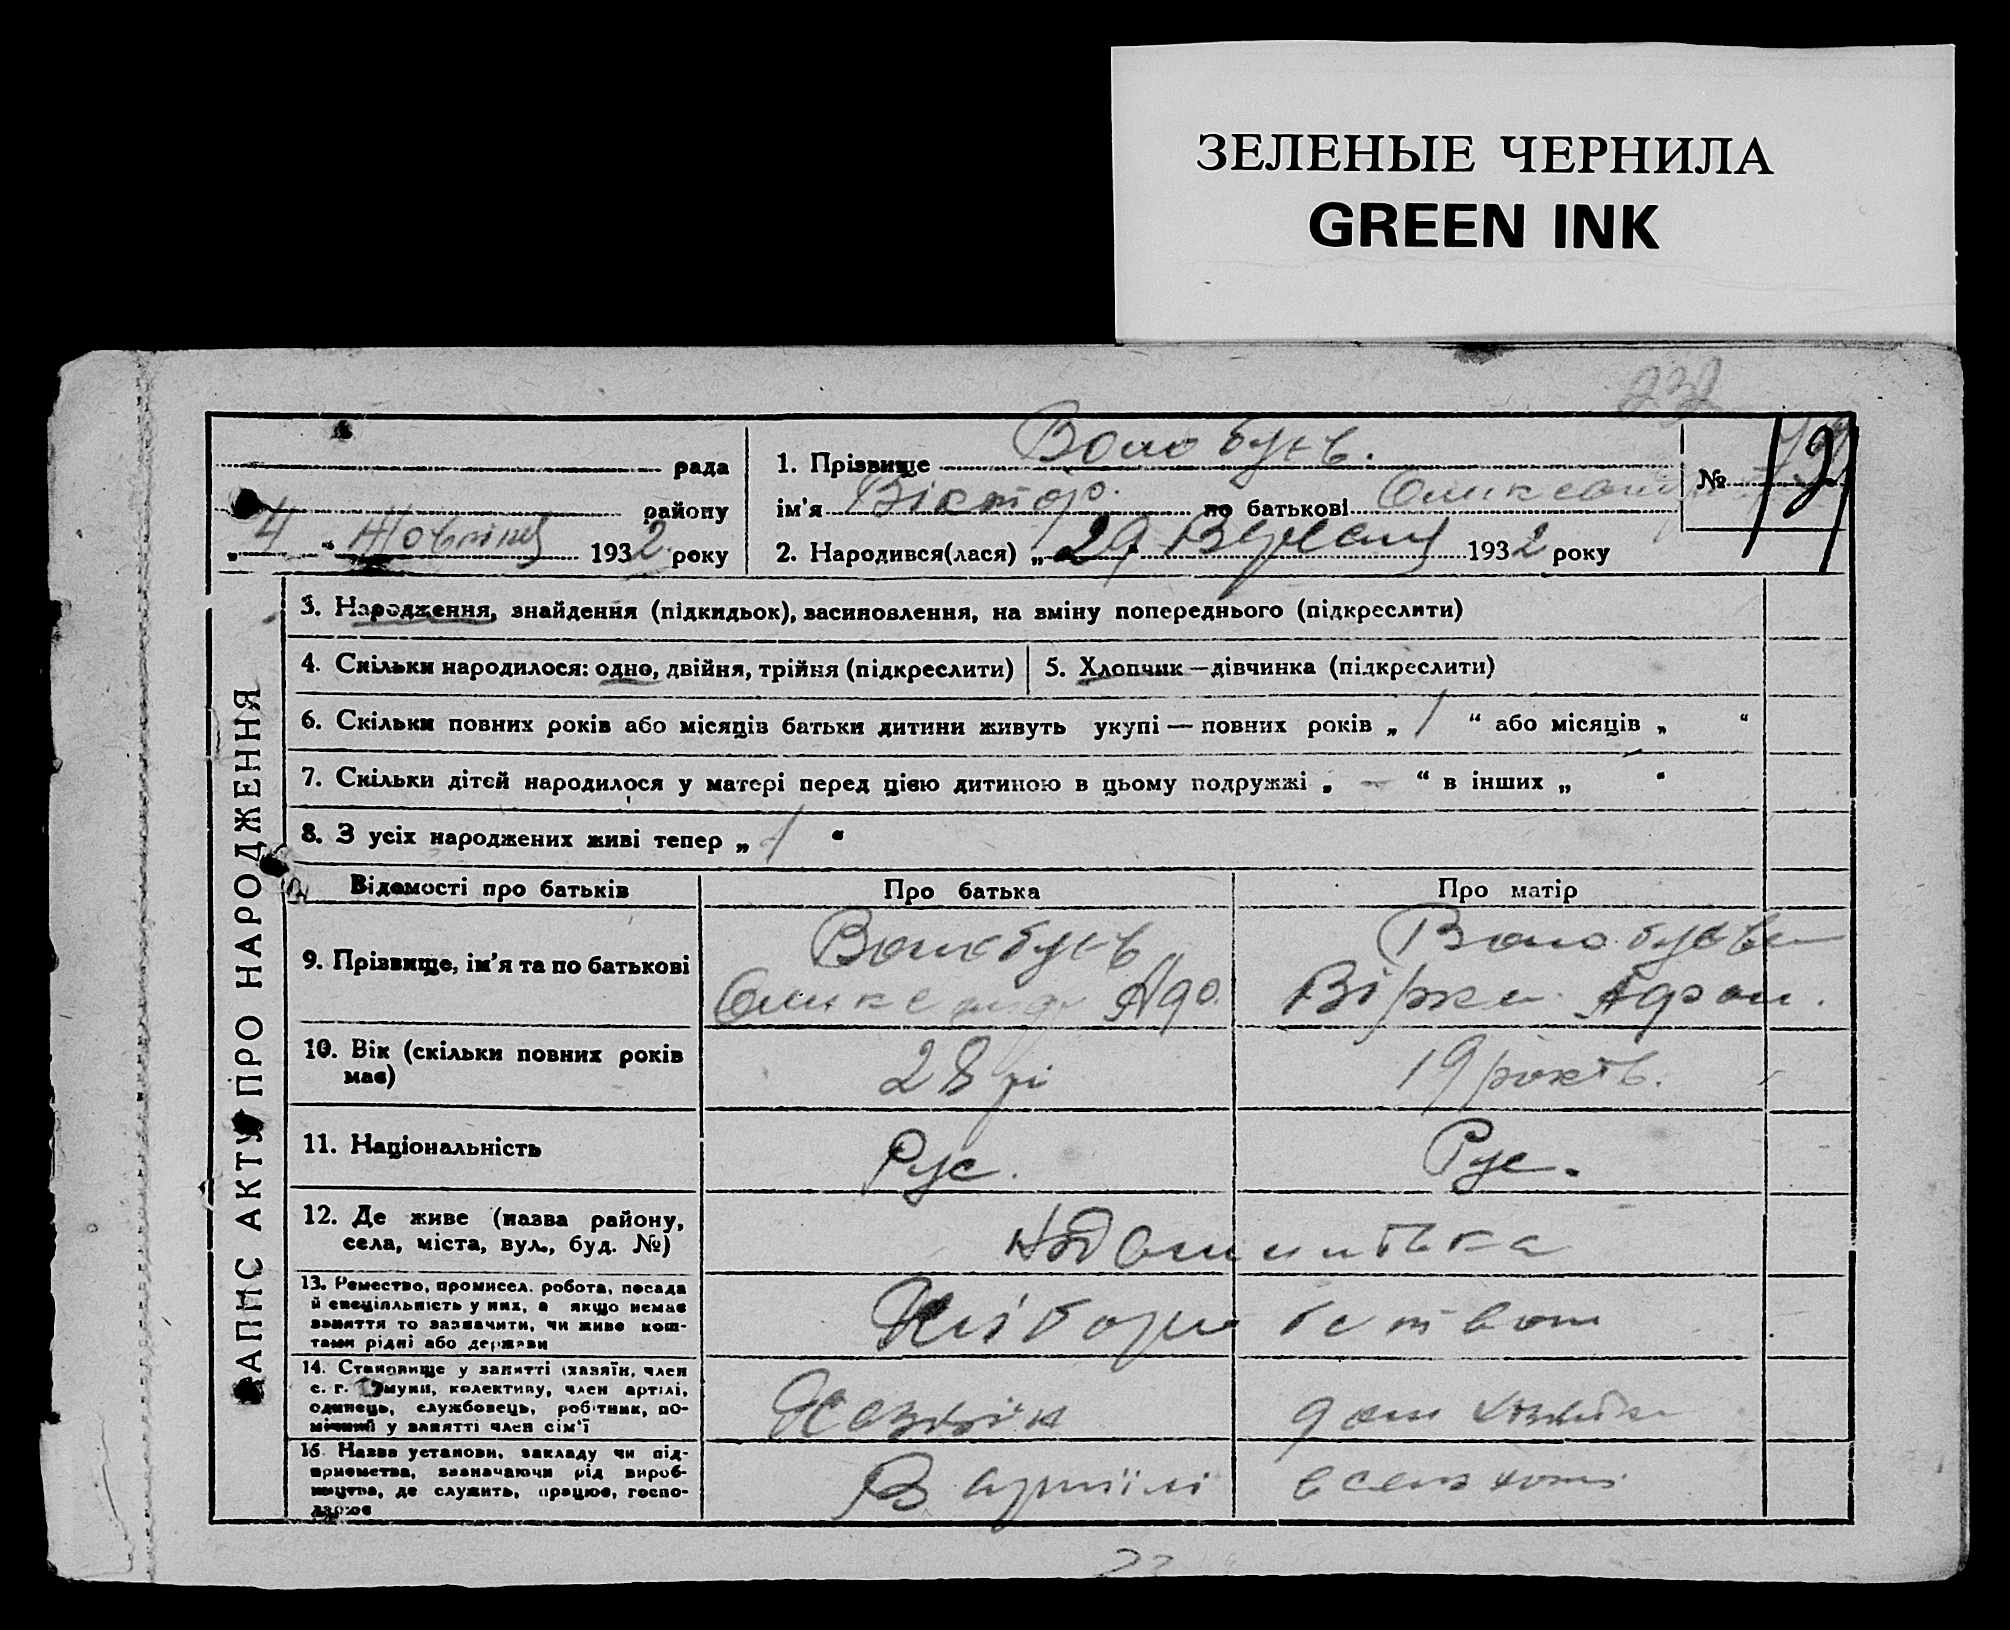 ЗЕЛЕНЫЕ ЧЕРНИЛА
GREEN INK
232
рада
району
„ 4 “ Жовтня 1932 року
1. Прізвище Волобуєв.
ім'я Віктор. по батькові
2. Народився(лася) „ 29 “ Вересня 1932 року
№
ЗАПИС АКТУ ПРО НАРОДЖЕННЯ
3. Народження, знайдення (підкидьок), засиновлення, на зміну попереднього (підкреслити)
4. Скільки народилося: одно, двійня, трійня (підкреслити)
5. Хлопчик—дівчинка (підкреслити)
6. Скільки повних років або місяців батьки дитини живуть укупі — повних років „ 1 “ або місяців „ “
7. Скільки дітей народилося у матері перед цією дитиною в цьому подружжі „ — “ в інших „ “
8. З усіх народжених живі тепер „ 1 “
Відомості про батьків
Про батька
Про матір
9. Прізвище, ім'я та по батькові
Волобуєв
Волобуєва
10. Вік (скільки повних років має)
28 рі
19 років.
11. Національність
Рус.
Рус.
12. Де живе (назва району,
села, міста, вул., буд. №)
13. Ремество, промисел. робота, посада
й спеціяльність у них, а якщо немає
заняття то зазначити, чи живе кош-
тами рідні або держави
Хліборобством
14. Становище у занятті (хазяїн, член
с. г. комуни, колективу, член артілі,
одинець, службовець, робітник, по-
мічний у занятті член сім'ї
Хазяїн
дом хазяйка
15. Назва установи, закладу чи під-
приємства, зазначаючи рід вироб-
ництва, де служить, працює, госпо-
дарює
В артілі